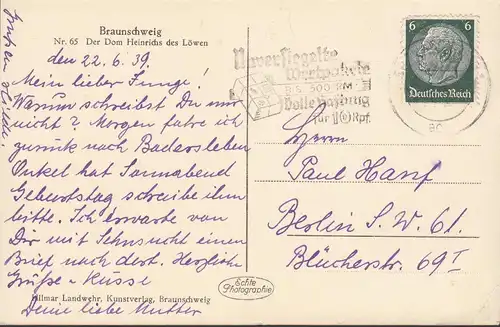 Braunschweig
Nr. 65 Der Dom Heinrichs des Löwen
den 22.6.39.
Mein lieber Junge!
Warum schreibst Du mir
nicht? Morgen fahre ich
zurück nach Badersleben
Onkel hat Sonnabend
Geburtstag schreibe ihm
bitte. Ich erwarte von
Dir mit Sehnsucht einen
Brief nach dort. Herzliche
Grüße + Küsse
Deine liebe Mutter
Hilmar Landwehr, Kunstverlag, Braunschweig
Echte
Photographie
Unversiegelte
Wertpakete
BIS 500 RM
Volle Haftung
für 10 Rpf.
6 6
Deutsches Reich
Herrn
Paul Hanf
Berlin S.W. 61.
Blücherstr. 69 I